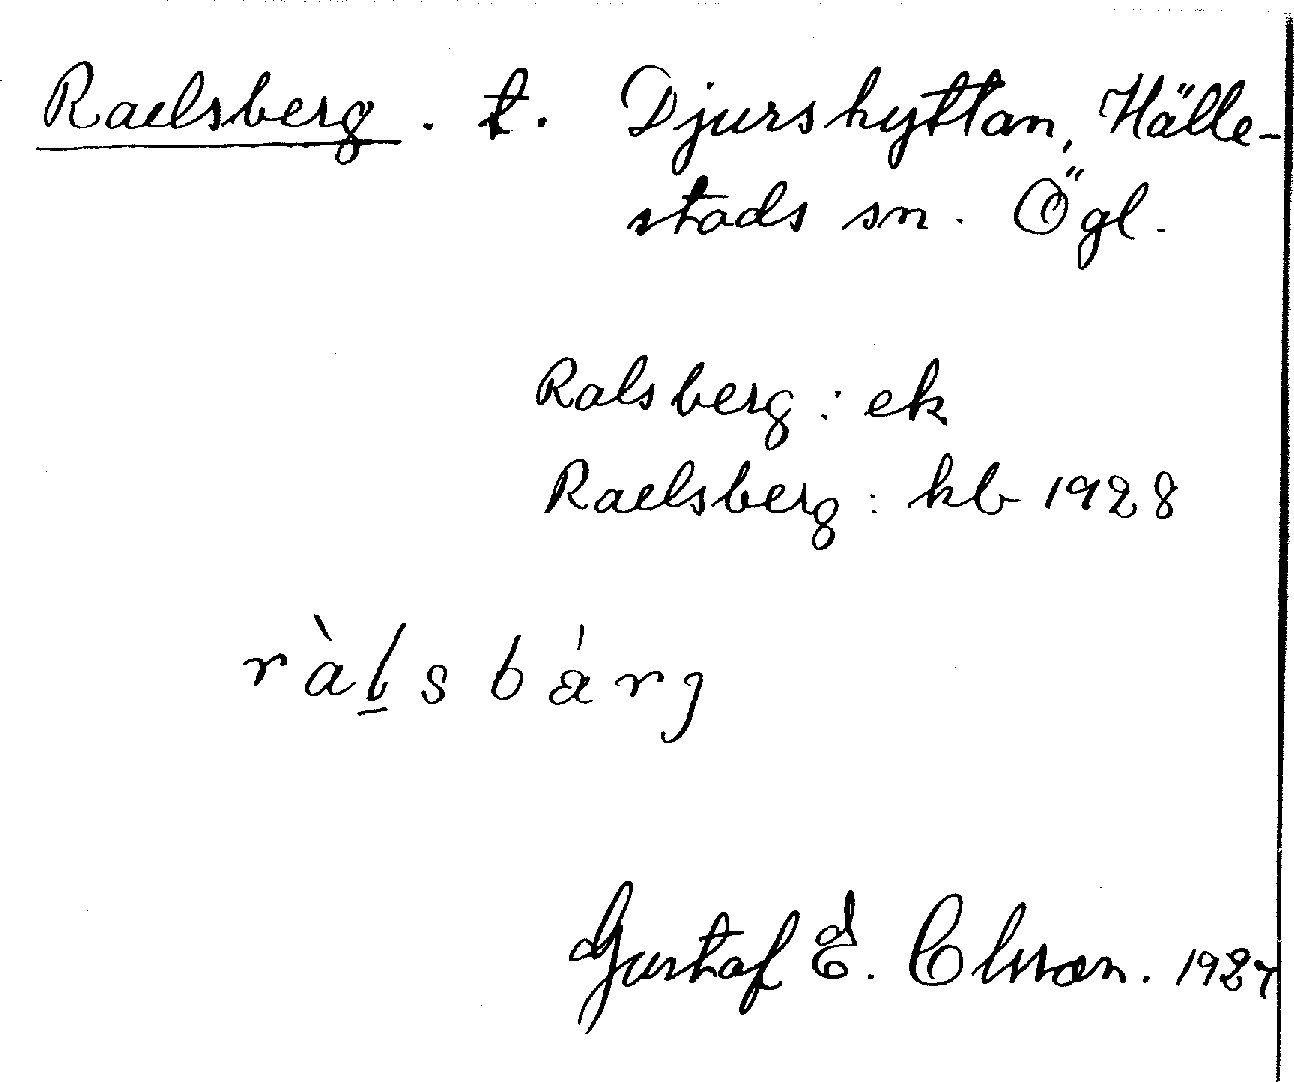 Raelsberg. t. Djurshyttan, Hälle-
stads sn. Ögl.
Ralsberg: ek
Raelsberg: kb 1928
ràḻsbárj
Gustaf E. Olsson. 1927